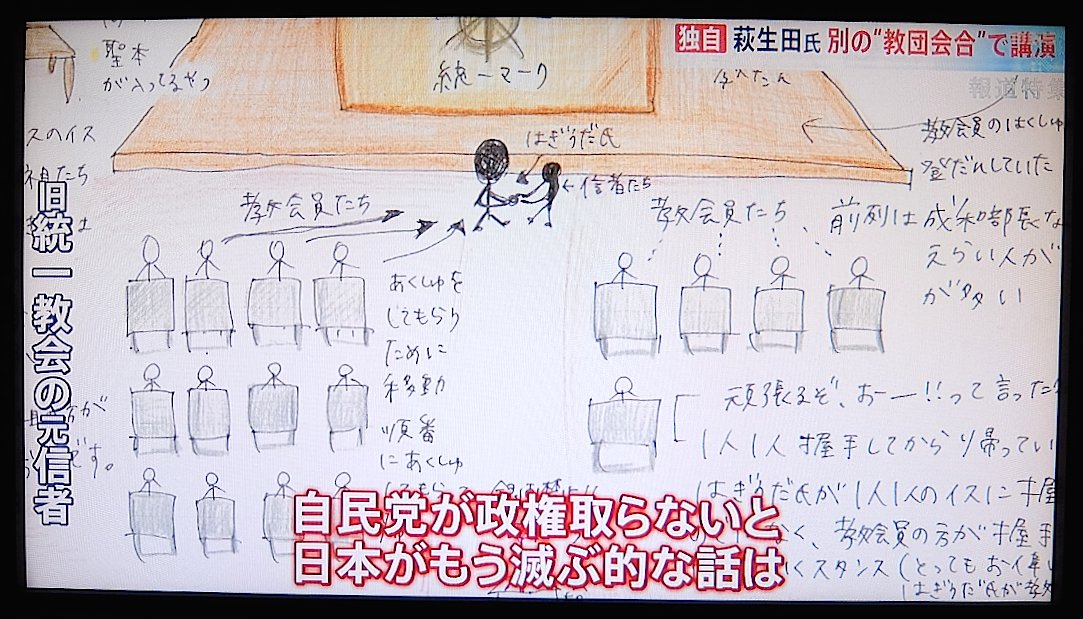 独自 萩生田氏 別の“教団会合”で講演
報道特集
聖本
が入ってるやつ
統一マーク
はぎうだ氏
←信者たち
教会員のはくしゅ
登だんしていた
スのイス
旧統一教会の元信者
教会員たち
あくしゅを
してもらう
ために
移動
順番
にあくしゅ
教会員たち
前列は成和部長な
えらい人が
が多い
頑張るぞ、おー!!って言った
1人1人握手してから帰ってい
はぎうだ氏が1人1人のイスに握
なく、教会員の方が握手
くスタンス(とってもお偉い
はぎうだ氏が教
です。
自民党が政権取らないと
日本がもう滅ぶ的な話は